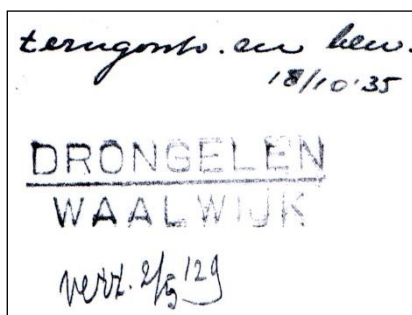 terugontv. en bew.
18/10'35
DRONGELEN
WAALWIJK
verz. 2/5 '29